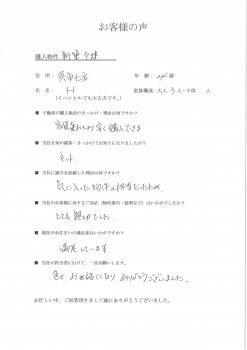 お客様の声
購入物件 新築戸建
住所: 呉市仁方 年齢: 24 歳
氏名: H 家族構成:大人 3 人・子供 人
(イニシャルでも大丈夫です。)
■ 不動産の購入検討のきっかけ・理由は何ですか?
家賃更新より安く購入できる
■ 当社を何の媒体・きっかけでお知りになりましたか?
ネット
■ 当社に仲介を依頼した理由は何ですか?
気に入った物件の担当だったため
■ 当社のお客様に対するご対応(物件案内・説明など)はいかがでしたか?
とても親切でした
■ 現在のお住まいの満足度はいかがですか?
満足しています
■ 当社の担当者にむけて、一言お願いします。
色々お世話になりありがとうございました。
お忙しい中、ご回答頂きまして誠にありがとうございました。